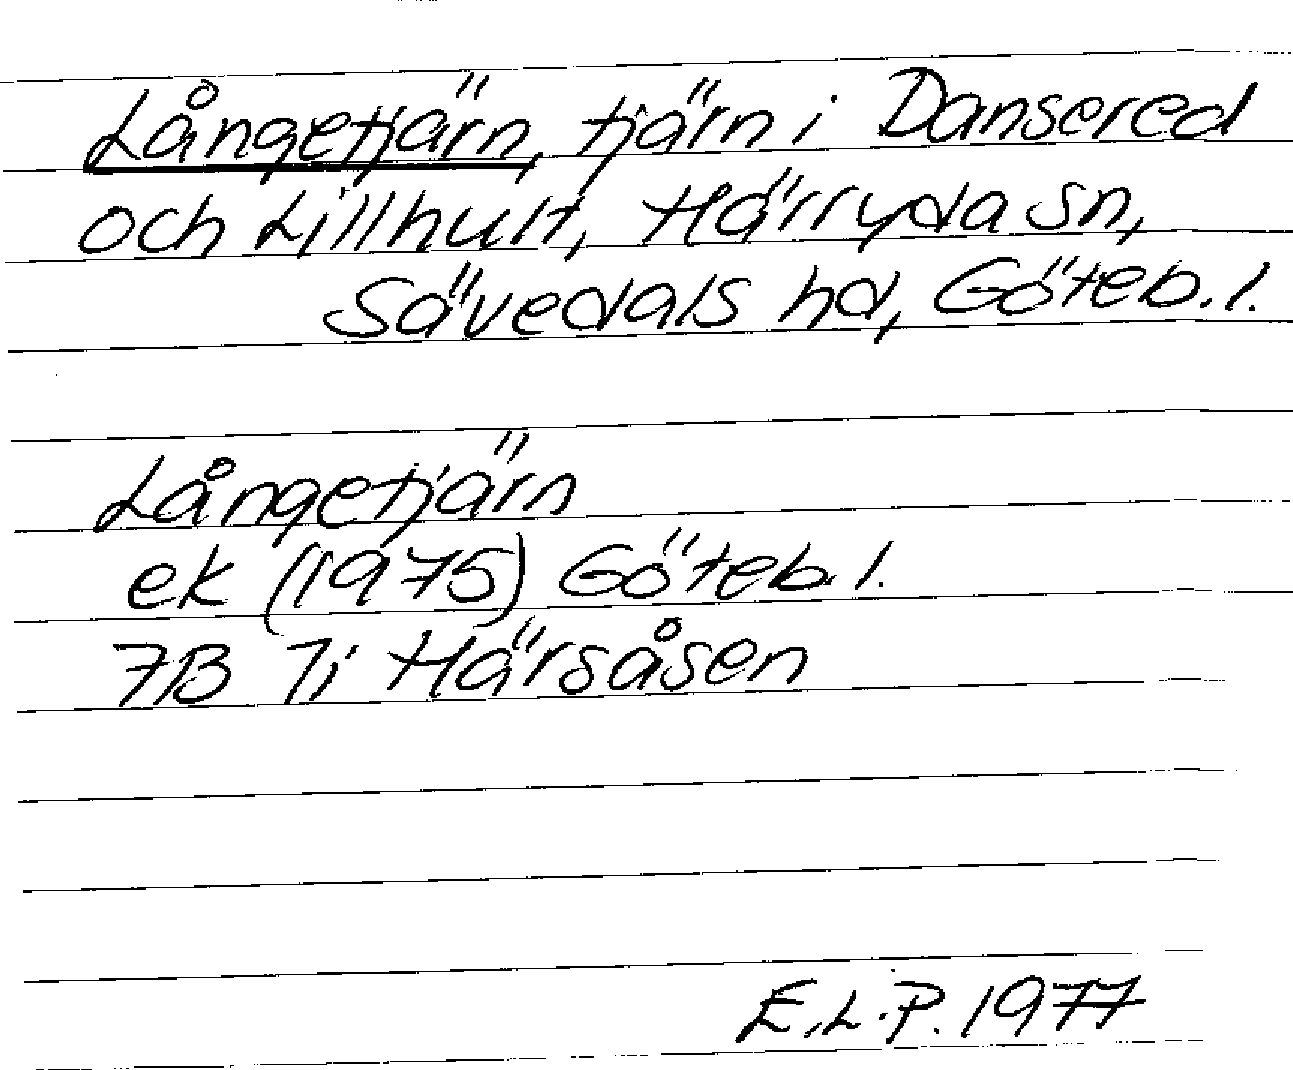 Långetjärn, tjärn i Dansered
och Lillhult, Härryda sn,
Sävedals hd, Göteb. l.
Långetjärn
ek (1975) Göteb. l.
7B 7i Härsåsen
E.L.P. 1977